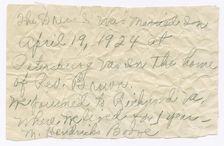 The Dress I Was Married In
April 19, 1924 at
Petersburg Va. In the home
of Rev. Brown.
We Returned to Richmond Va,
where we lived for 1 year -
M. Hendricks Boone